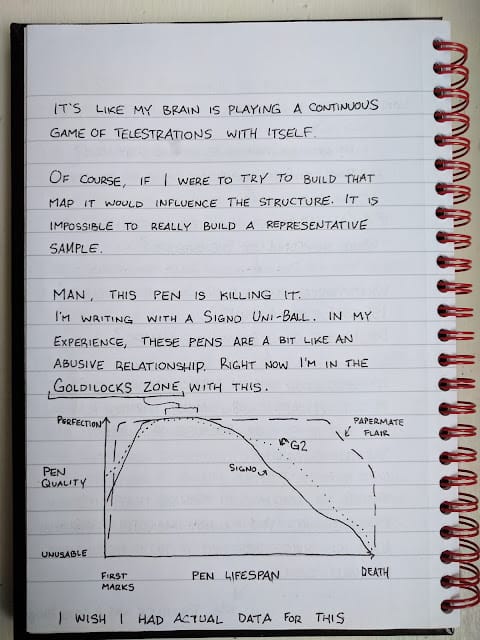 IT'S LIKE MY BRAIN IS PLAYING A CONTINUOUS
GAME OF TELESTRATIONS WITH ITSELF.
OF COURSE, IF I WERE TO TRY TO BUILD THAT
MAP IT WOULD INFLUENCE THE STRUCTURE. IT IS
IMPOSSIBLE TO REALLY BUILD A REPRESENTATIVE
SAMPLE.
MAN, THIS PEN IS KILLING IT.
I'M WRITING WITH A SIGNO UNI-BALL. IN MY
EXPERIENCE, THESE PENS ARE A BIT LIKE AN
ABUSIVE RELATIONSHIP. RIGHT NOW I'M IN THE
GOLDILOCKS ZONE WITH THIS.
PERFECTION
PAPERMATE
FLAIR
G2
SIGNO
PEN
QUALITY
UNUSABLE
FIRST
MARKS
PEN LIFESPAN
DEATH
I WISH I HAD ACTUAL DATA FOR THIS